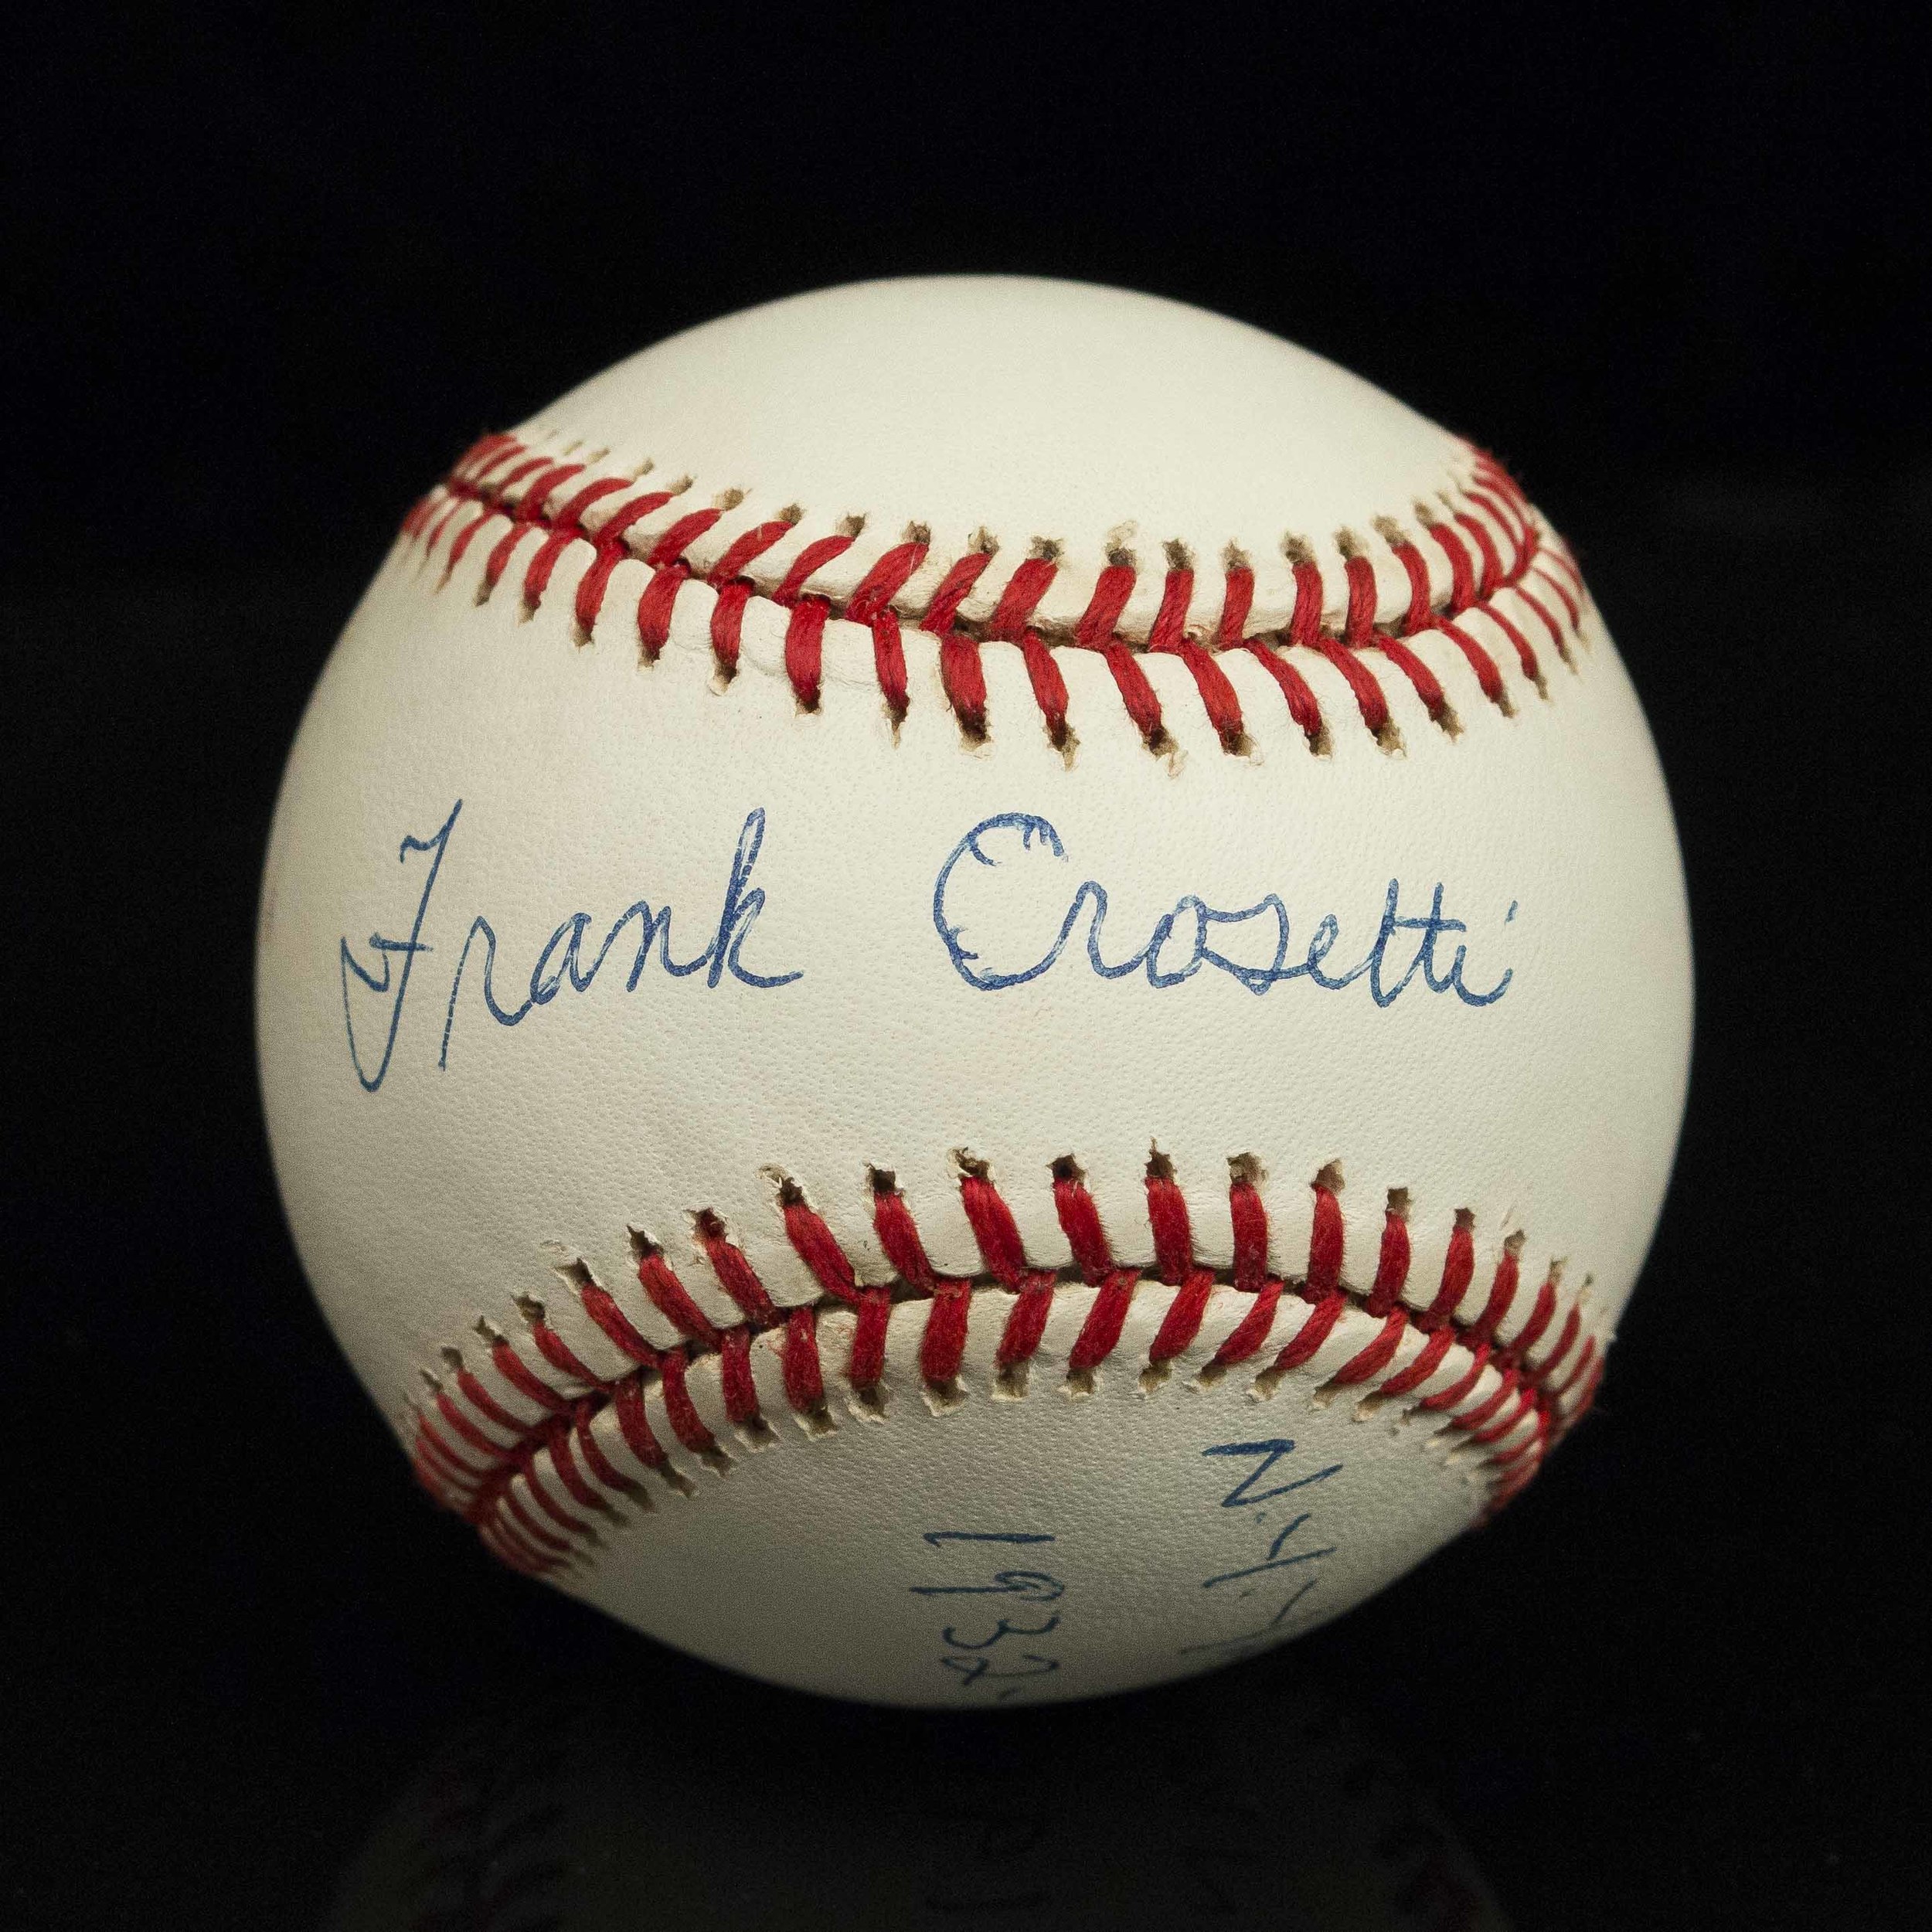 Frank Crosetti
N.Y.
1932